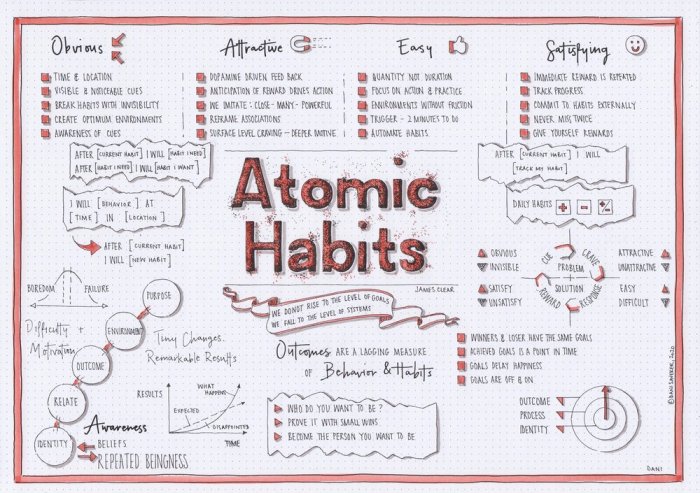 Obvious
TIME & LOCATION
VISIBLE & NOTICEABLE CUES
BREAK HABITS WITH INVISIBILITY
CREATE OPTIMUM ENVIRONMENTS
AWARENESS OF CUES
Attractive
DOPAMINE DRIVEN FEED BACK
ANTICIPATION OF REWARD DRIVES ACTION
WE IMITATE - CLOSE - MANY - POWERFUL
REFRAME ASSOCIATIONS
SURFACE LEVEL CRAVING - DEEPER MOTIVE
Easy
QUANTITY NOT DURATION
FOCUS ON ACTION & PRACTICE
ENVIRONMENTS WITHOUT FRICTION
TRIGGER - 2 MINUTES TO DO
AUTOMATE HABITS
Satisfying
IMMEDIATE REWARD IS REPEATED
TRACK PROGRESS
COMMIT TO HABITS EXTERNALLY
NEVER MISS TWICE
GIVE YOURSELF REWARDS
AFTER [CURRENT HABIT] I WILL [HABIT I NEED]
AFTER [HABIT I NEED] I WILL [HABIT I WANT]
I WILL [BEHAVIOR] AT
[TIME] IN [LOCATION]
AFTER [CURRENT HABIT]
I WILL [NEW HABIT]
Atomic
Habits
JAMES CLEAR
WE DO NOT RISE TO THE LEVEL OF GOALS
WE FALL TO THE LEVEL OF SYSTEMS
AFTER [CURRENT HABIT] I WILL
[TRACK MY HABIT]
DAILY HABITS + - +/-
OBVIOUS
INVISIBLE
SATISFY
UNSATISFY
CUE
CRAVE
PROBLEM
SOLUTION
REWARD
RESPONSE
ATTRACTIVE
UNATTRACTIVE
EASY
DIFFICULT
BOREDOM
FAILURE
Difficulty +
Motivation
PURPOSE
ENVIRONMENT
OUTCOME
RELATE
IDENTITY
Tiny Changes.
Remarkable Results
RESULTS
WHAT
HAPPENS
EXPECTED
DISAPPOINTED
TIME
Awareness
BELIEFS
REPEATED BEINGNESS
Outcomes ARE A LAGGING MEASURE
OF Behavior & Habits
WHO DO YOU WANT TO BE?
PROVE IT WITH SMALL WINS
BECOME THE PERSON YOU WANT TO BE
WINNERS & LOSER HAVE THE SAME GOALS
ACHIEVED GOALS IS A POINT IN TIME
GOALS DELAY HAPPINESS
GOALS ARE OFF & ON
OUTCOME
PROCESS
IDENTITY
DANI